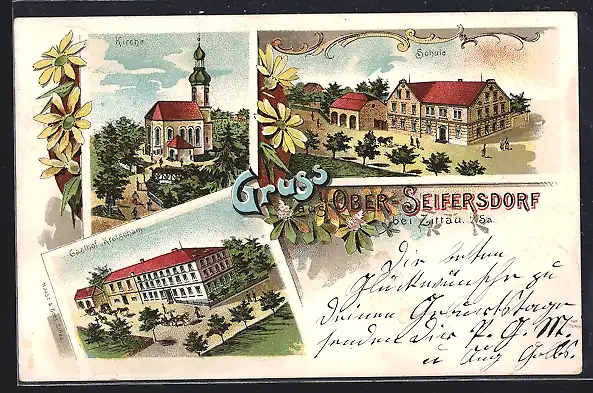 Kirche
Schule
Gruss
aus OBER-SEIFERSDORF
bei Zittau. i/Sa.
Gasthof Kretscham
Die besten
Glückwünsche zu
deinem Geburtstage
senden Dir
u